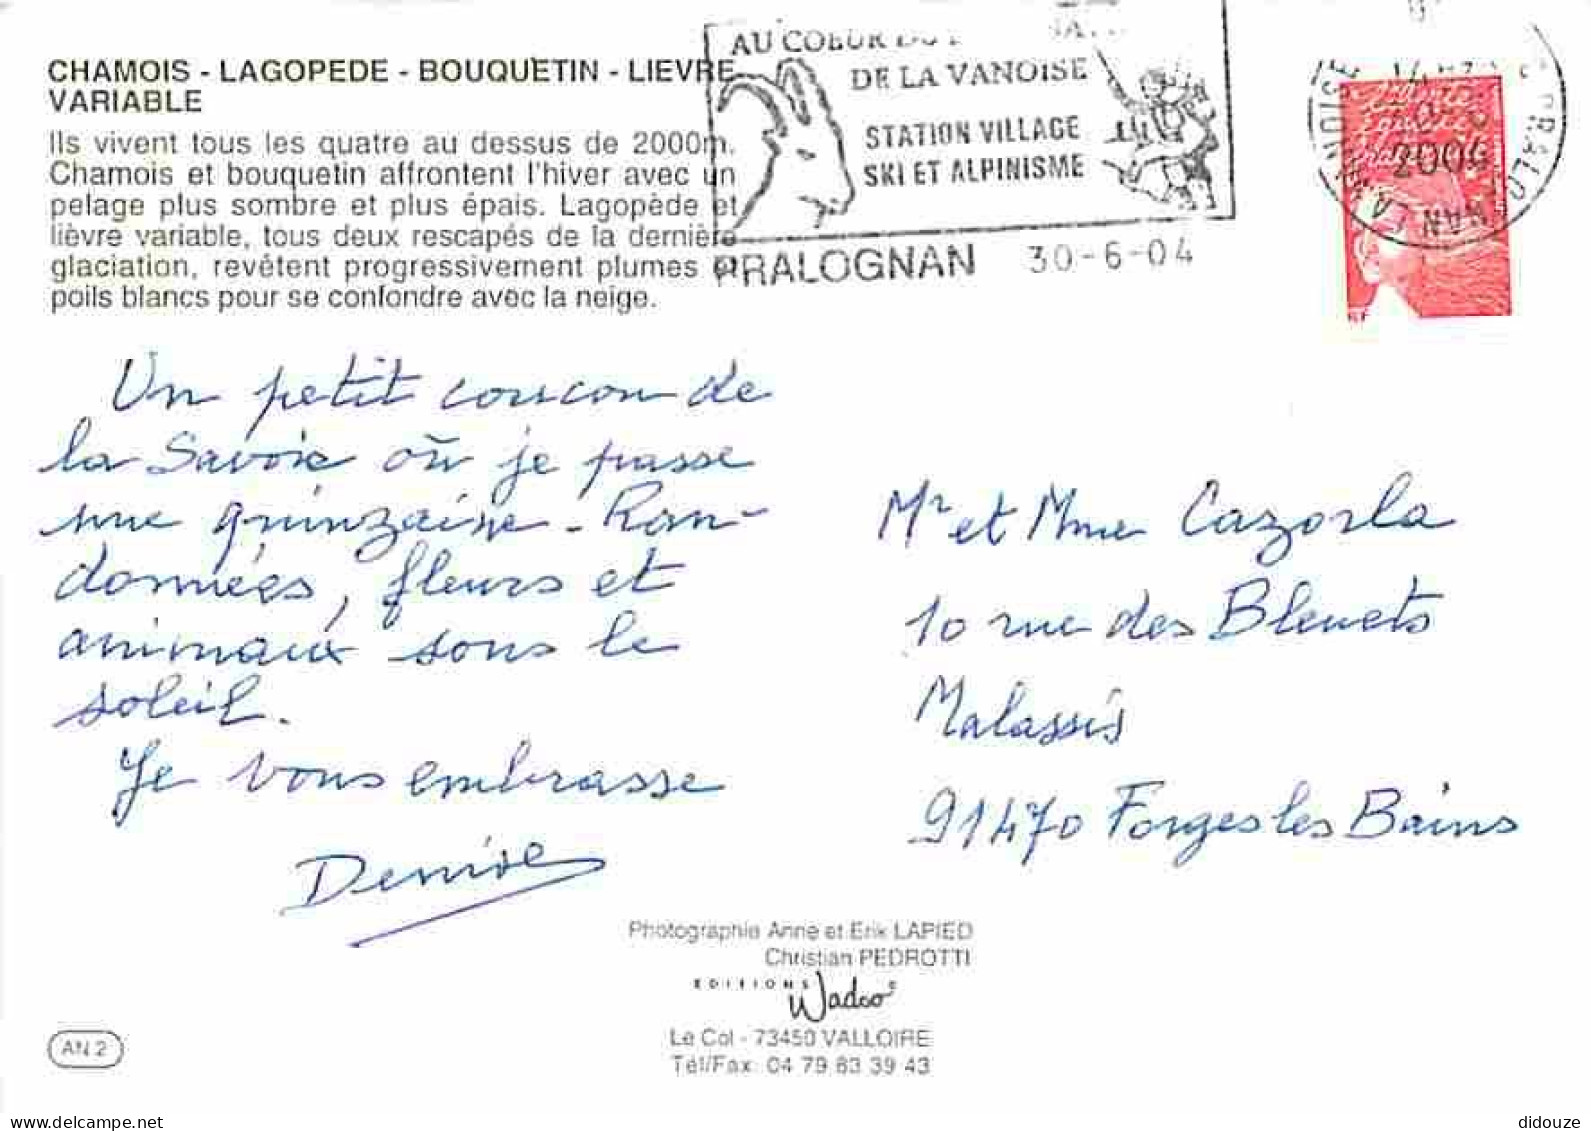 CHAMOIS - LAGOPEDE - BOUQUETIN - LIEVRE
VARIABLE
Ils vivent tous les quatre au dessus de 2000m.
Chamois et bouquetin affrontent l'hiver avec un
pelage plus sombre et plus épais. Lagopède et
lièvre variable, tous deux rescapés de la dernière
glaciation, revêtent progressivement plumes et
poils blancs pour se confondre avec la neige.
AU COEUR
DE LA VANOISE
STATION VILLAGE
SKI ET ALPINISME
PRALOGNAN 30-6-04
2004
RF
Un petit coucou de
la Savoie où je passe
une quinzaine - Ran-
données, fleurs et
animaux sous le
soleil.
Je vous embrasse
Denise
Mr et Mme Cazorla
10 rue des Bleuets
Malassis
91470 Forges les Bains
Photographie Anne et Erik LAPIED
Christian PEDROTTI
EDITIONS Wadoo
Le Col - 73450 VALLOIRE
Tél/Fax: 04 79 83 39 43
AN 2
www.delcampe.net
didouze